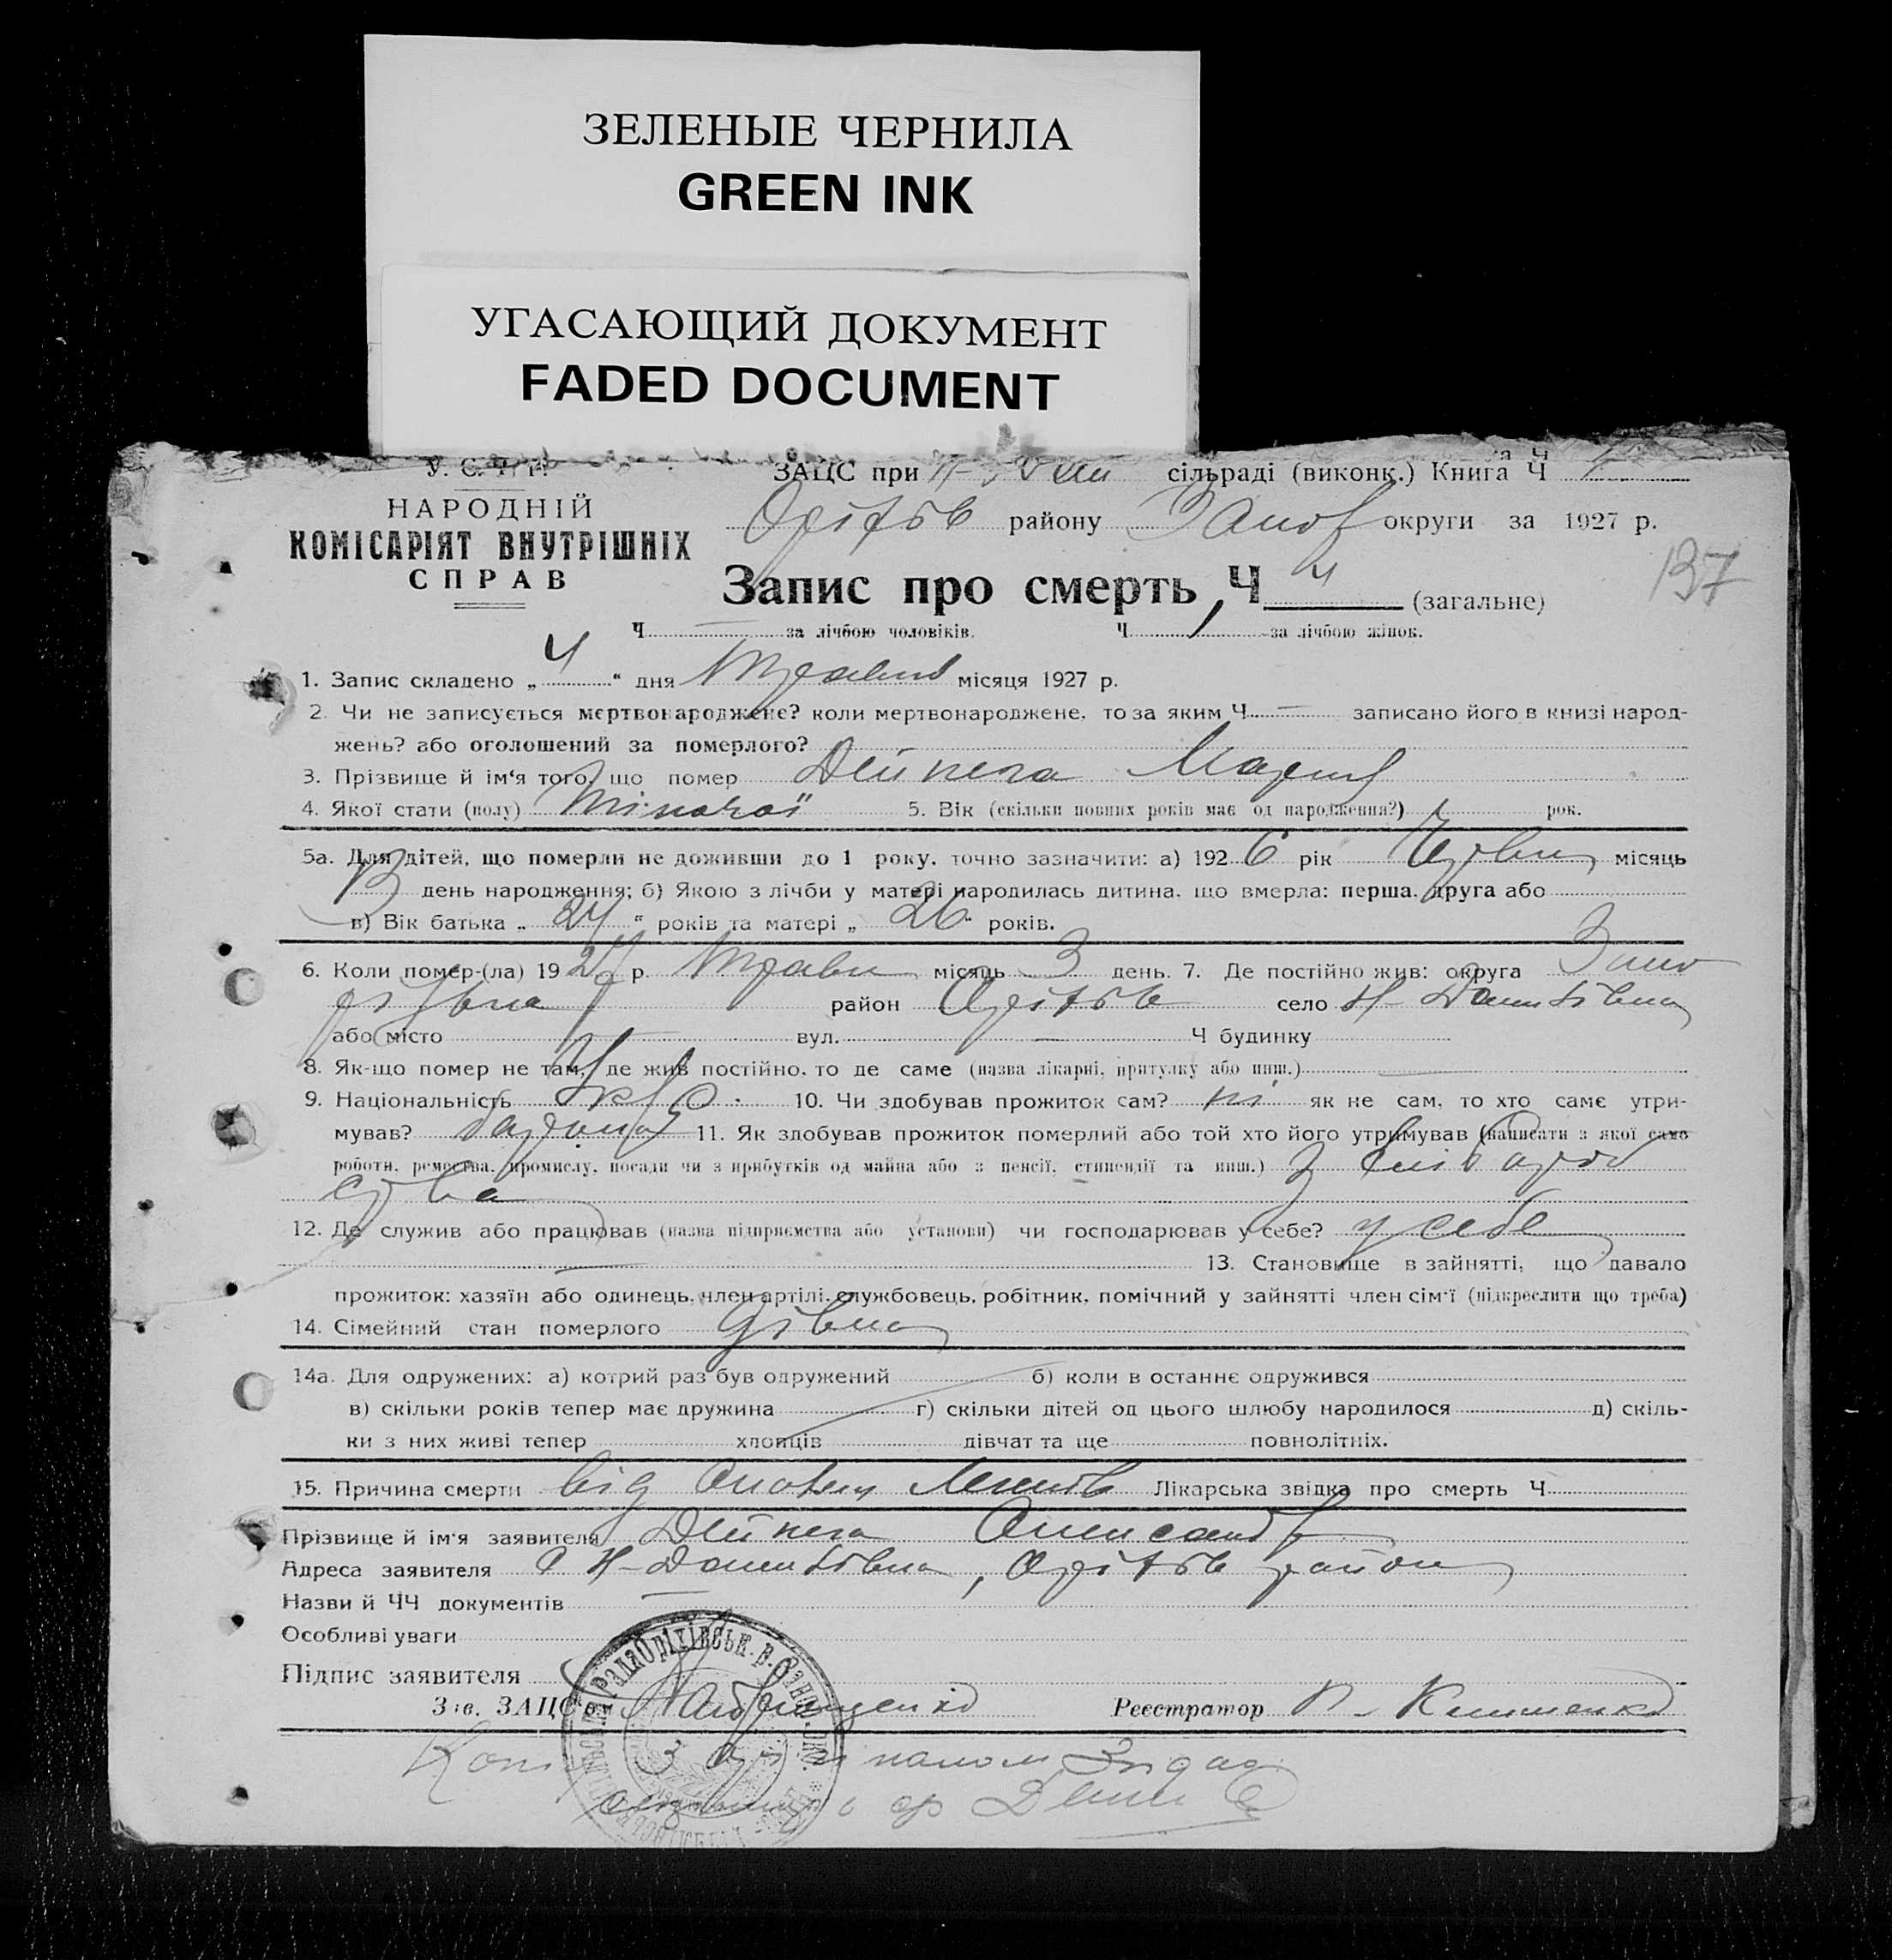 ЗЕЛЕНЫЕ ЧЕРНИЛА
GREEN INK
УГАСАЮЩИЙ ДОКУМЕНТ
FADED DOCUMENT
ЗАЦС при сільраді (виконк.) Книга Ч
НАРОДНІЙ
КОМІСАРІЯТ ВНУТРІШНІХ
СПРАВ
Оріхів району Запор округи за 1927 р.
137
Запис про смерть, Ч 4 (загальне)
Ч — за лічбою чоловіків. Ч 1 за лічбою жінок.
1. Запис складено „ 4 “ дня Травня місяця 1927 р.
2. Чи не записується мертвонароджене? коли мертвонароджене, то за яким Ч. — записано його в книзі народ-
жень? або оголошений за померлого?
3. Прізвище й ім‘я того, що помер Дейнега Марія
4. Якої стати (полу) жіночої 5. Вік (скільки повних років має од народження?) рок.
5а. Для дітей, що померли не доживши до 1 року, точно зазначити: а) 192 6 рік Червня місяць
13 день народження; б) Якою з лічби у матері народилась дитина, що вмерла: перша, друга або
в) Вік батька „ 27 “ років та матері „ 26 “ років.
6. Коли помер-(ла) 19 27 р. Травня місяць 3 день. 7. Де постійно жив: округа Запо
ріжська район Оріхів село Н-Данилівка
або місто — вул. — Ч будинку
8. Як-що помер не там, де жив постійно, то де саме (назва лікарні, притулку або инш.) —
9. Національність Укр. 10. Чи здобував прожиток сам? ні як не сам, то хто саме утри-
мував? батько 11. Як здобував прожиток померлий або той хто його утримував (написати з якої само
роботи, ремества, промислу, посади чи з прибутків од майна або з пенсії, стипендії та инш.) З хліборо
бства
12. Де служив або працював (назва підприємства або установи) чи господарював у себе? у себе
— 13. Становище в зайнятті, що давало
прожиток: хазяїн або одинець, член артілі, службовець, робітник, помічний у зайнятті член сім‘ї (підкреслити що треба)
14. Сімейний стан померлого дівка
14а. Для одружених: а) котрий раз був одружений б) коли в останнє одружився
в) скільки років тепер має дружина г) скільки дітей од цього шлюбу народилося д) скіль-
ки з них живі тепер хлопців дівчат та ще повнолітніх.
15. Причина смерти від Лікарська звідка про смерть Ч
Прізвище й ім‘я заявителя Дейнега Олександр
Адреса заявителя с Н-Данилівка, Оріхів район
Назви й ЧЧ документів —
Особливі уваги
Підпис заявителя
Зав. ЗАЦС'ом Реєстратор П. Клименко
з оригіналом